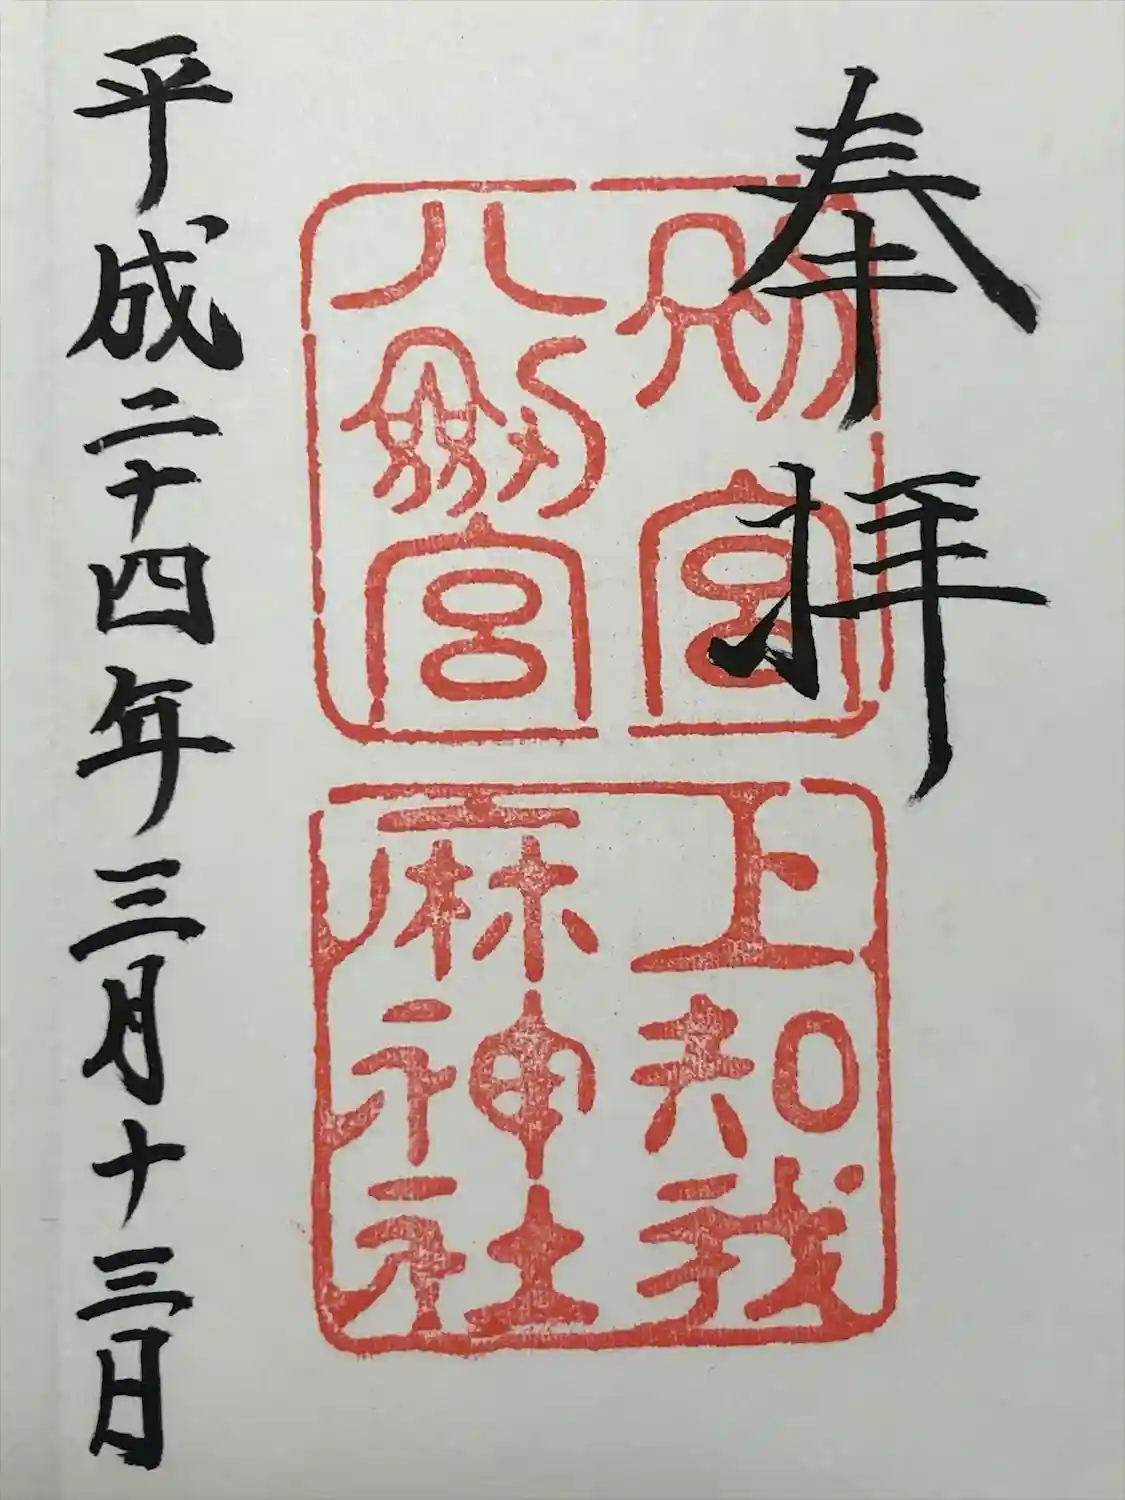 奉拝
別宮
八劒宮
上知我
麻神社
平成二十四年三月十三日